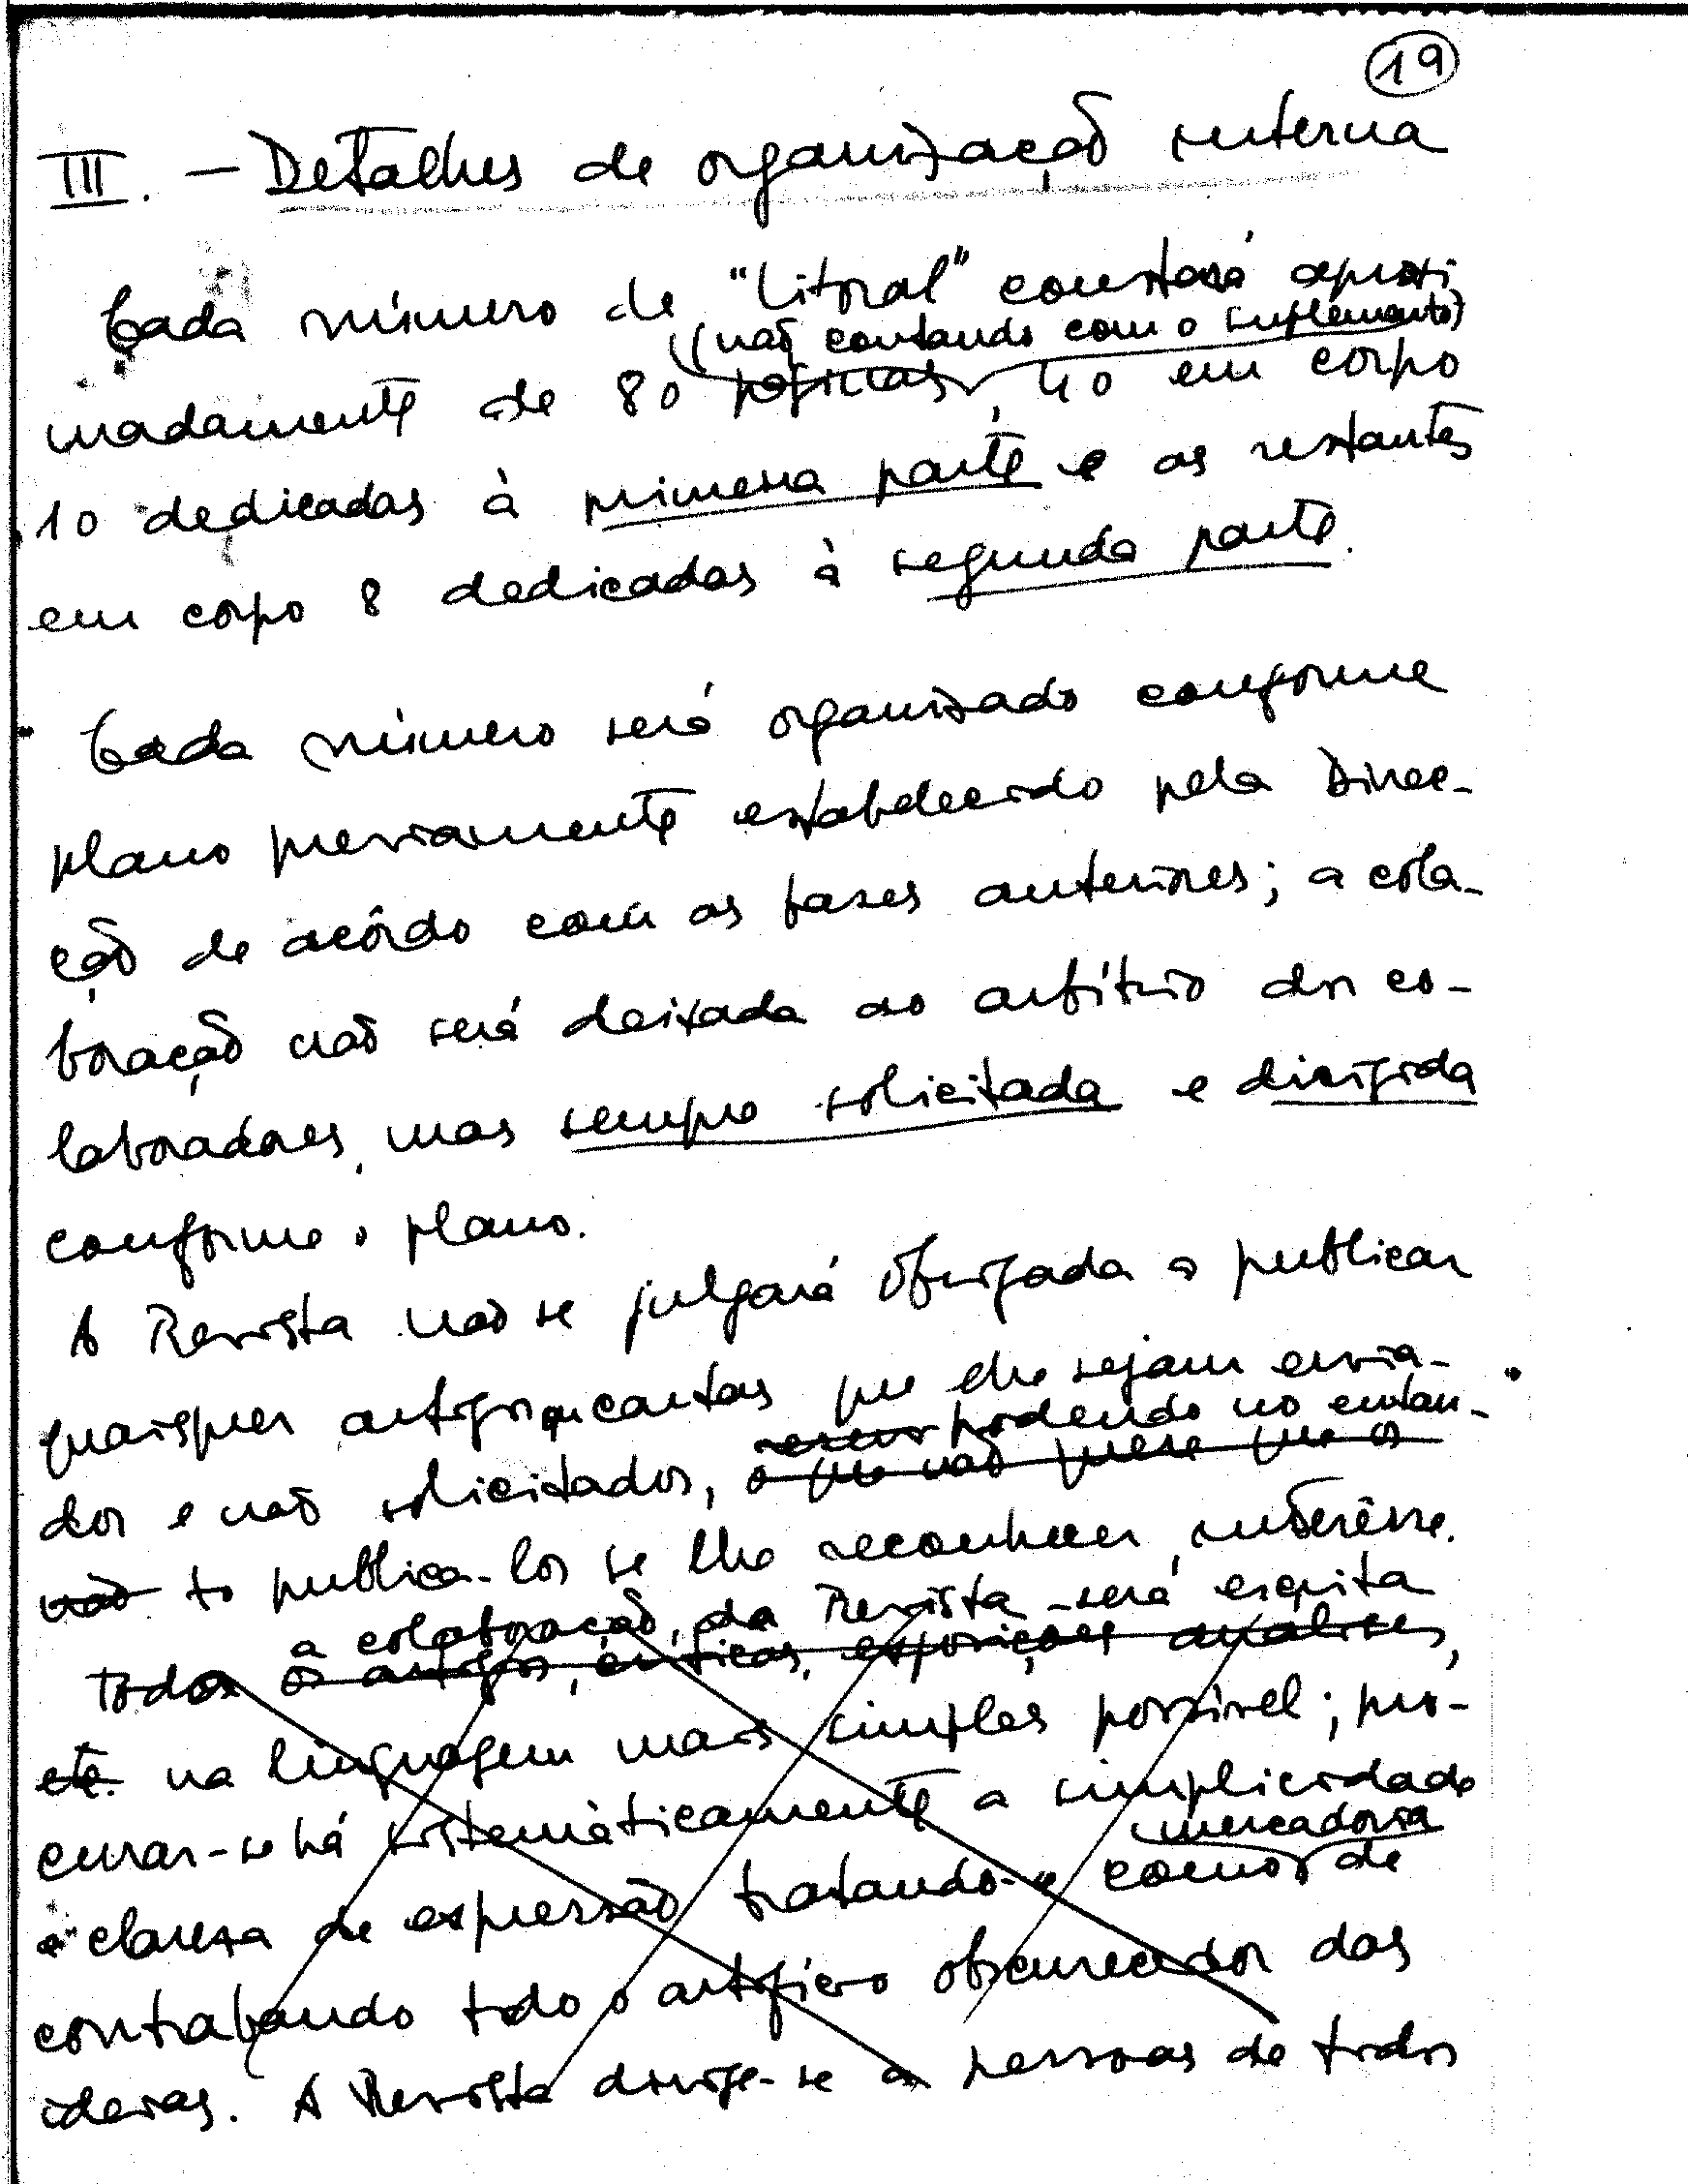 19
III. — Detalhes de organização interna
Cada número de "Litoral" constará aproxi
(não contando com o suplemento)
madamente de 80 páginas, 40 em corpo
10 dedicadas à primeira parte e as restantes
em corpo 8 dedicadas à segunda parte.
Cada número será organizado conforme
plano previamente estabelecido pela Direc-
ção de acôrdo com as bases anteriores; a cola-
boração não será deixada ao arbítrio dos co-
laboradores, mas sempre solicitada e dirigida
conforme o plano.
A Revista não se julgará obrigada a publicar
quaisquer artigos ou cartas que lhe sejam envia-
podendo no entan-
dos e não solicitados, o que não quere que os
não to publica-los se lhe reconhecer interêsse.
a colaboração da Revista será escrita
Toda os artigos, críticas, exposições análises,
etc. na linguagem mais simples possível; pro-
curar-se há sistemàticamente a simplicidade
mercadoria
e clareza de expressão tratando-se como de
contrabando todo o artifício obscurecedor das
ideias. A Revista dirige-se a pessoas de todos